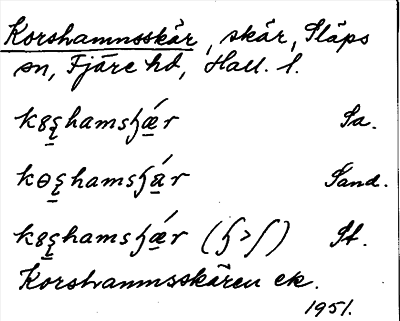 Korshamnsskär, skär, Släps
sn, Fjäre hd, Hall. l.
kȣʂhamsɧǽr Sa.
kɵʂhamsɧár Sand.
kȣʂhamsɧǽr (ɧ>ʃ) St.
Korshamnsskären ek.
1951.